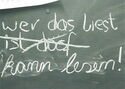 wer das liest
ist doof
kann lesen!